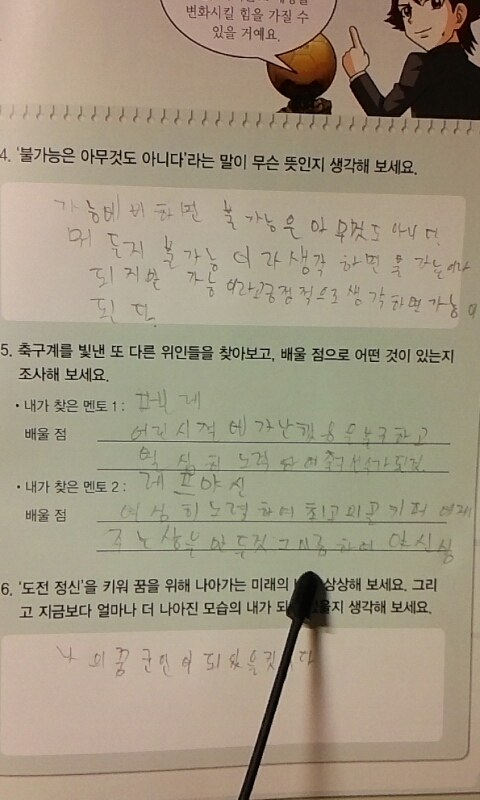 변화시킬 힘을 가질 수
있을 거예요.
4. '불가능은 아무것도 아니다'라는 말이 무슨 뜻인지 생각해 보세요.
가능에 비하면 불가능은 아무것도 아니다.
뭐든지 불가능 이라 생각하면 불가능이라
되지만 가능이라고 긍정적으로 생각하면 가능이
된다.
5. 축구계를 빛낸 또 다른 위인들을 찾아보고, 배울 점으로 어떤 것이 있는지
조사해 보세요.
• 내가 찾은 멘토 1 : 펠레
배울 점 어린시절에 가난했음을불구하고
열심히 노력하여 축구선수가되었다.
• 내가 찾은 멘토 2 : 레프 야신
배울 점 열심히 노력하여 최고의 골키퍼
상을 만들었 그 이름하여 야신상
6. '도전 정신'을 키워 꿈을 위해 나아가는 미래의 상상해 보세요. 그리
고 지금보다 얼마나 더 나아진 모습의 내가 생각해 보세요.
나의 꿈 군인이 되었을것이다